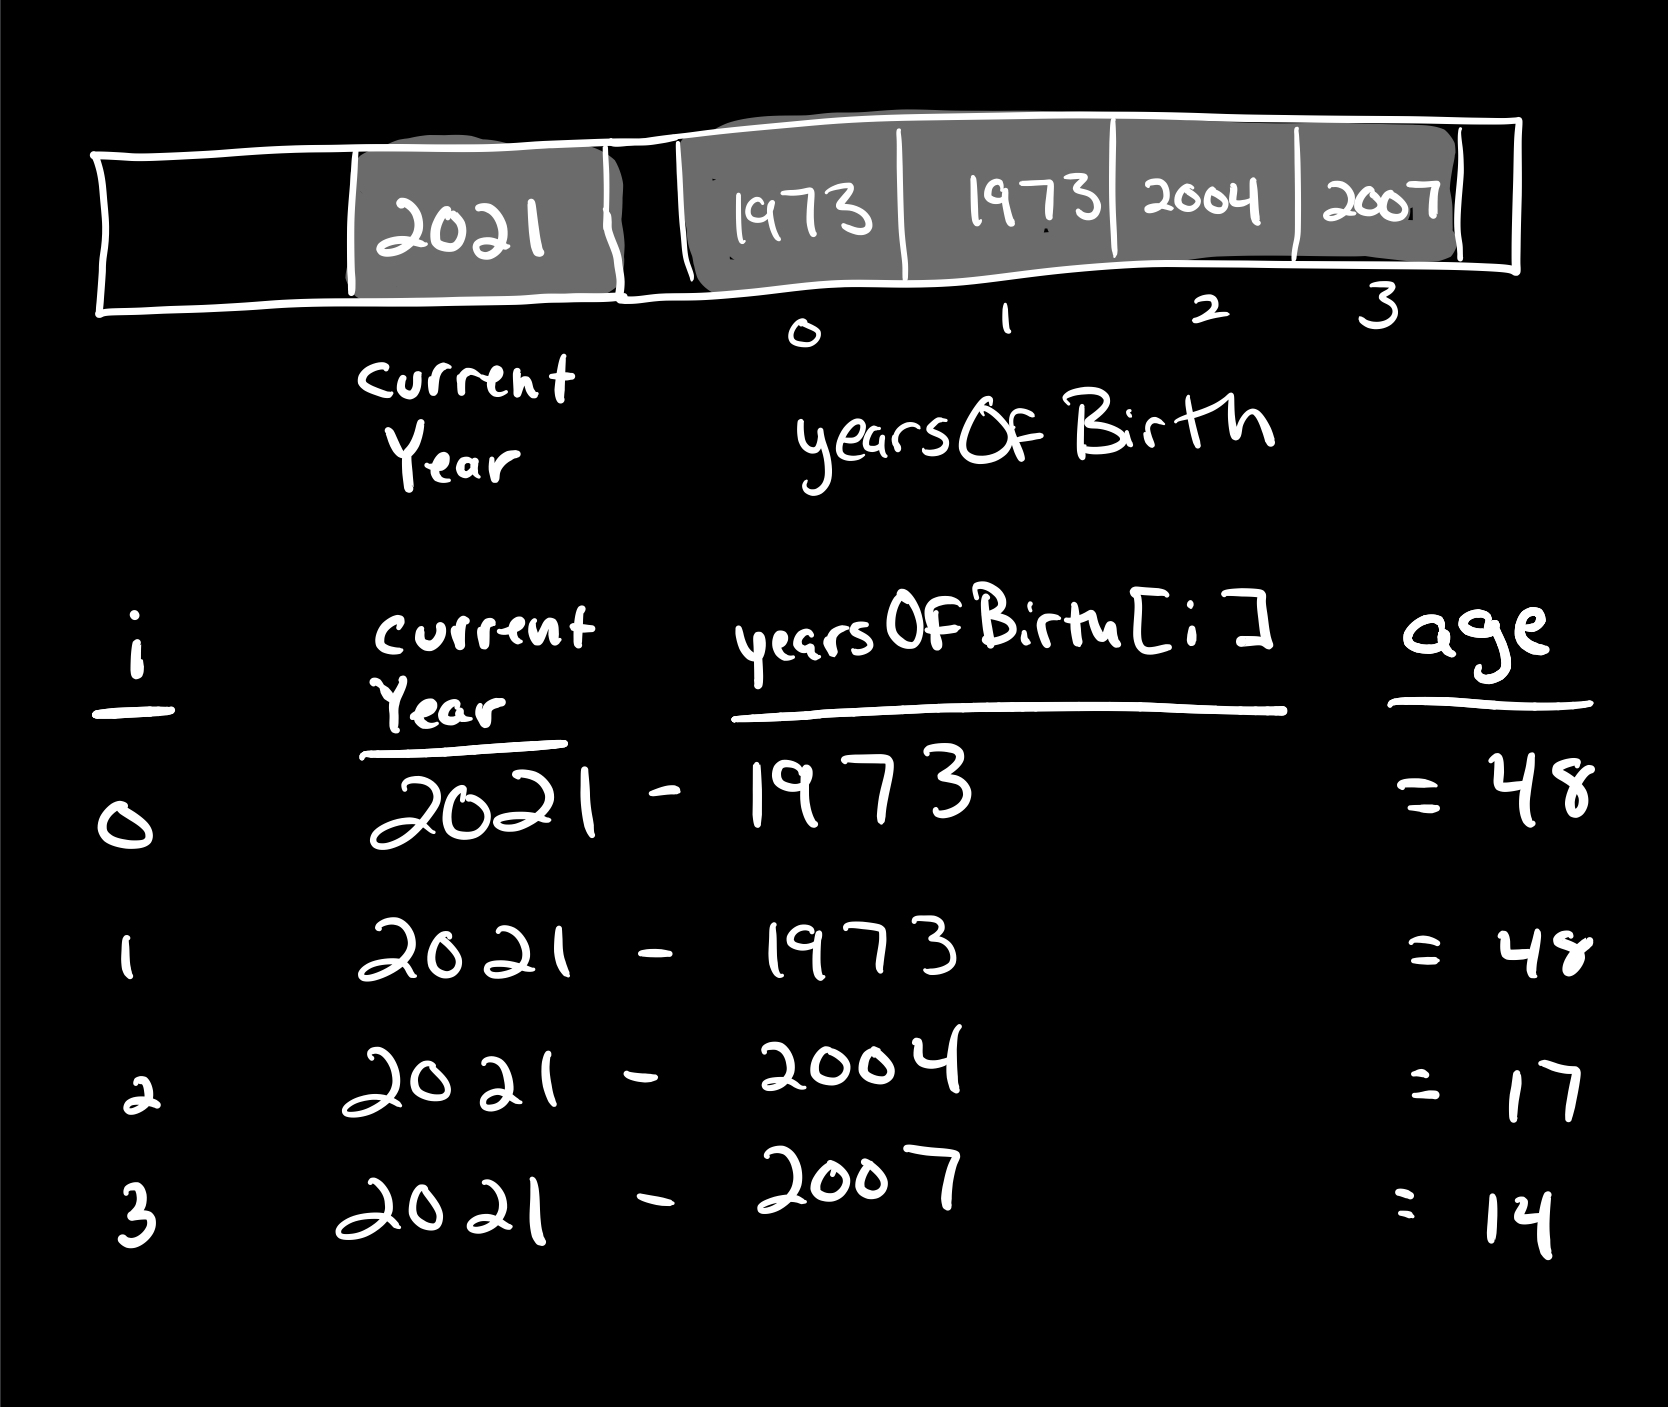 2021 1973 1973 2004 2007
0 1 2 3
current
Year
yearsOfBirth
i current
Year yearsOfBirth[i] age
0 2021 - 1973 = 48
1 2021 - 1973 = 48
2 2021 - 2004 = 17
3 2021 - 2007 = 14